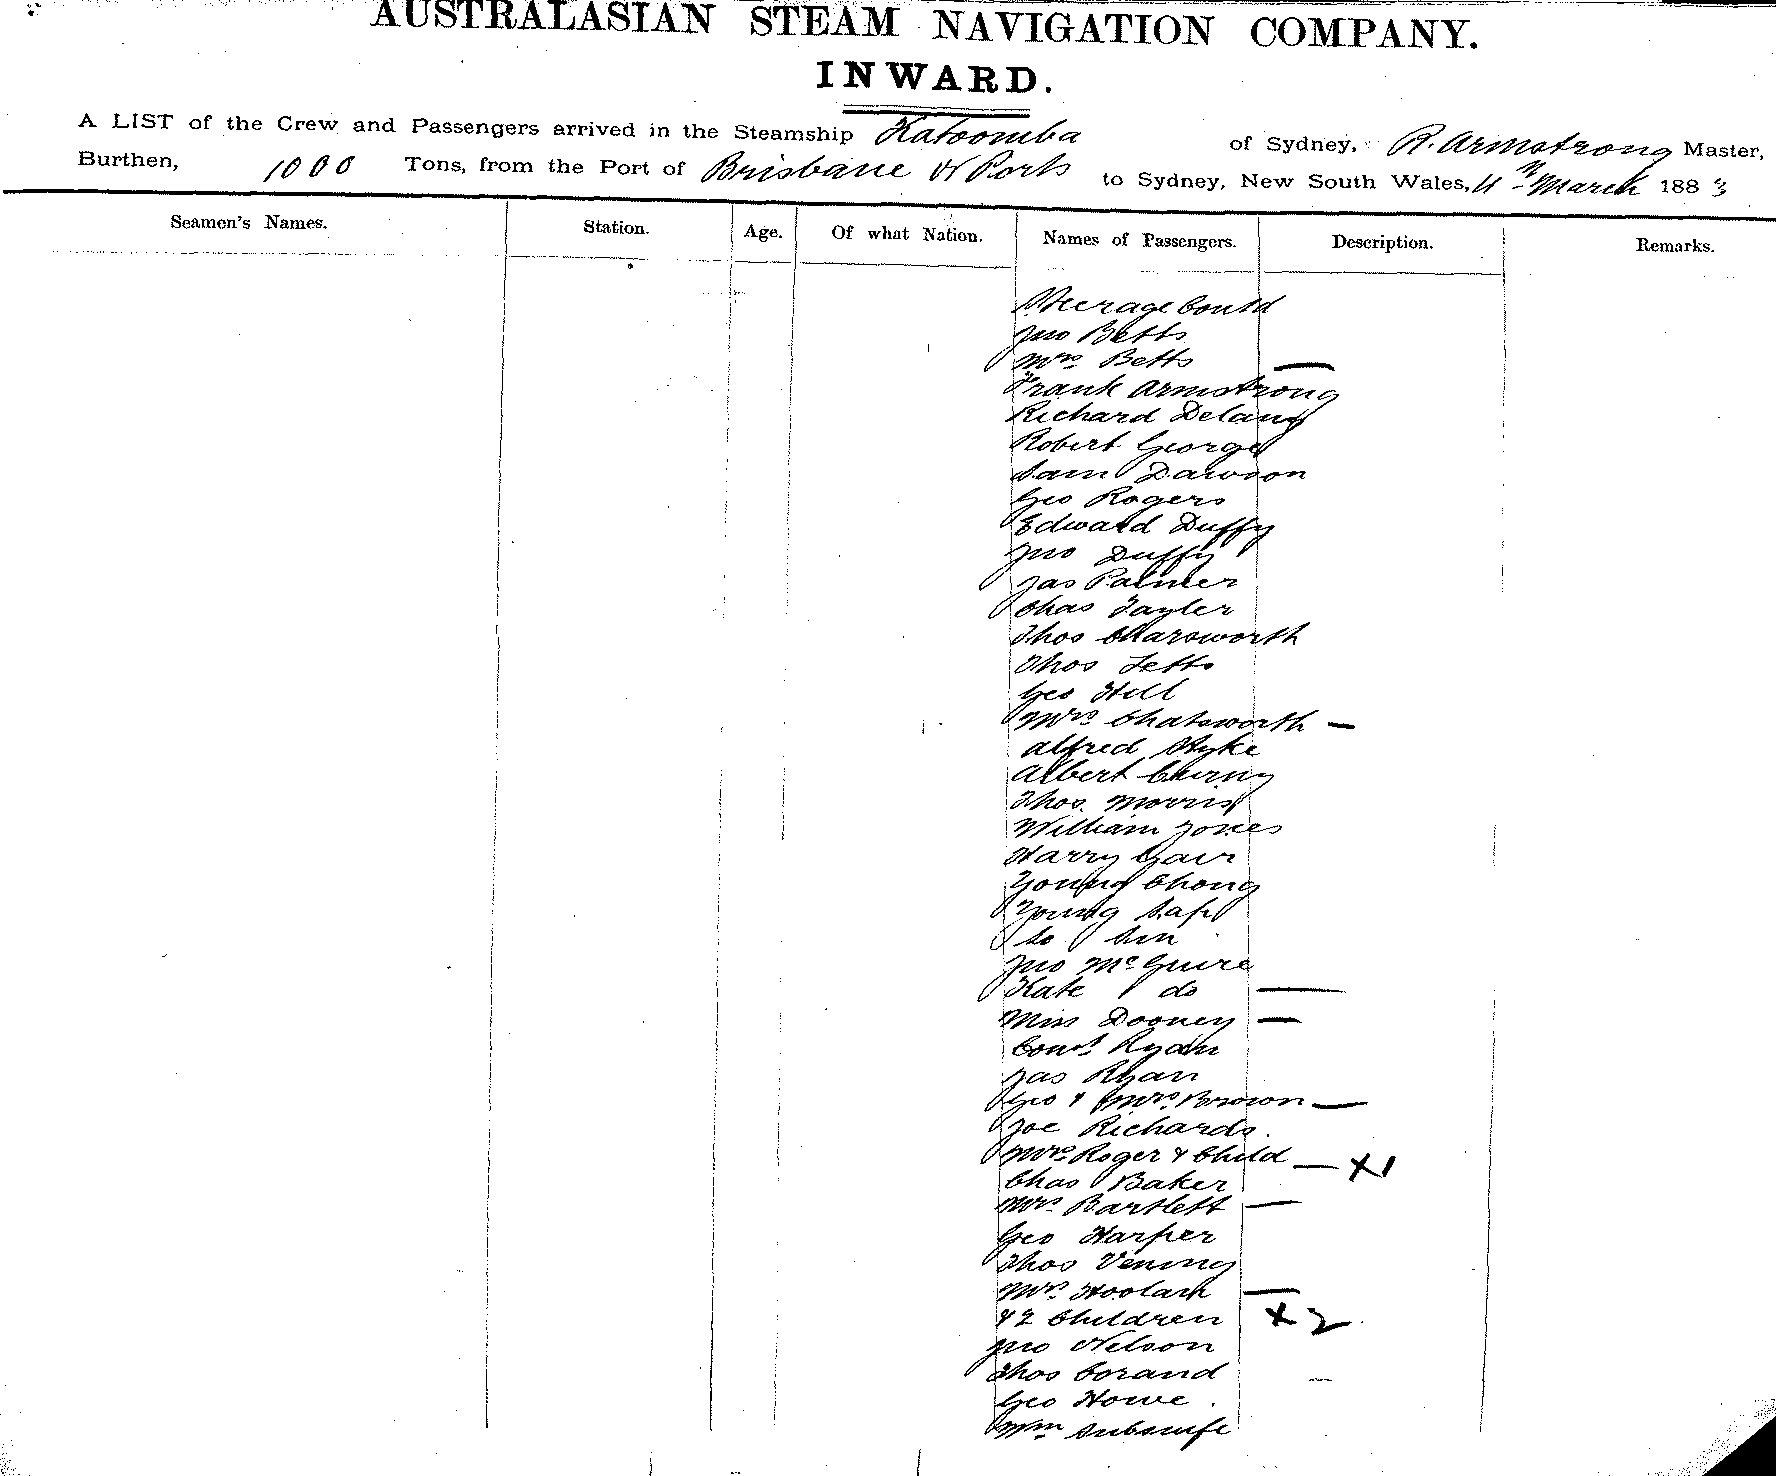 AUSTRALASIAN STEAM NAVIGATION COMPANY.
INWARD.
A LIST of the Crew and Passengers arrived in the Steamship Katoomba of Sydney, R. Armstrong Master,
Burthen, 1000 Tons, from the Port of Brisbane & Ports to Sydney, New South Wales, 11th March 1883
Seamen's Names. Station. Age. Of what Nation. Names of Passengers. Description. Remarks.
Steerage Contd
Jno Betts
Mrs Betts —
Frank Armstrong
Richard Delany
Robert George
Sam Dawson
Geo Rogers
Edward Duffy
Jno Duffy
Jas Palmer
Chas Tayler
Thos Charsworth
Thos Letts
Geo Hill
Mrs Chatsworth —
Alfred Hyke
Albert
Thos. Morris
William Jones
Harry Gair
Young Chong
Young Saf
So Sin
Jno McGuire
Kate do —
Miss Dooney —
Cons Ryan
Jas Ryan
Geo & Mrs Brown —
Joe Richards.
Mrs Roger & Child — X1
Chas Baker
Mrs Bartlett —
Geo Harper
Thos Vening
Mrs Hoolah —
& 2 Children X2
Jno Nelson
Thos Corand —
Geo Howe.
Wm